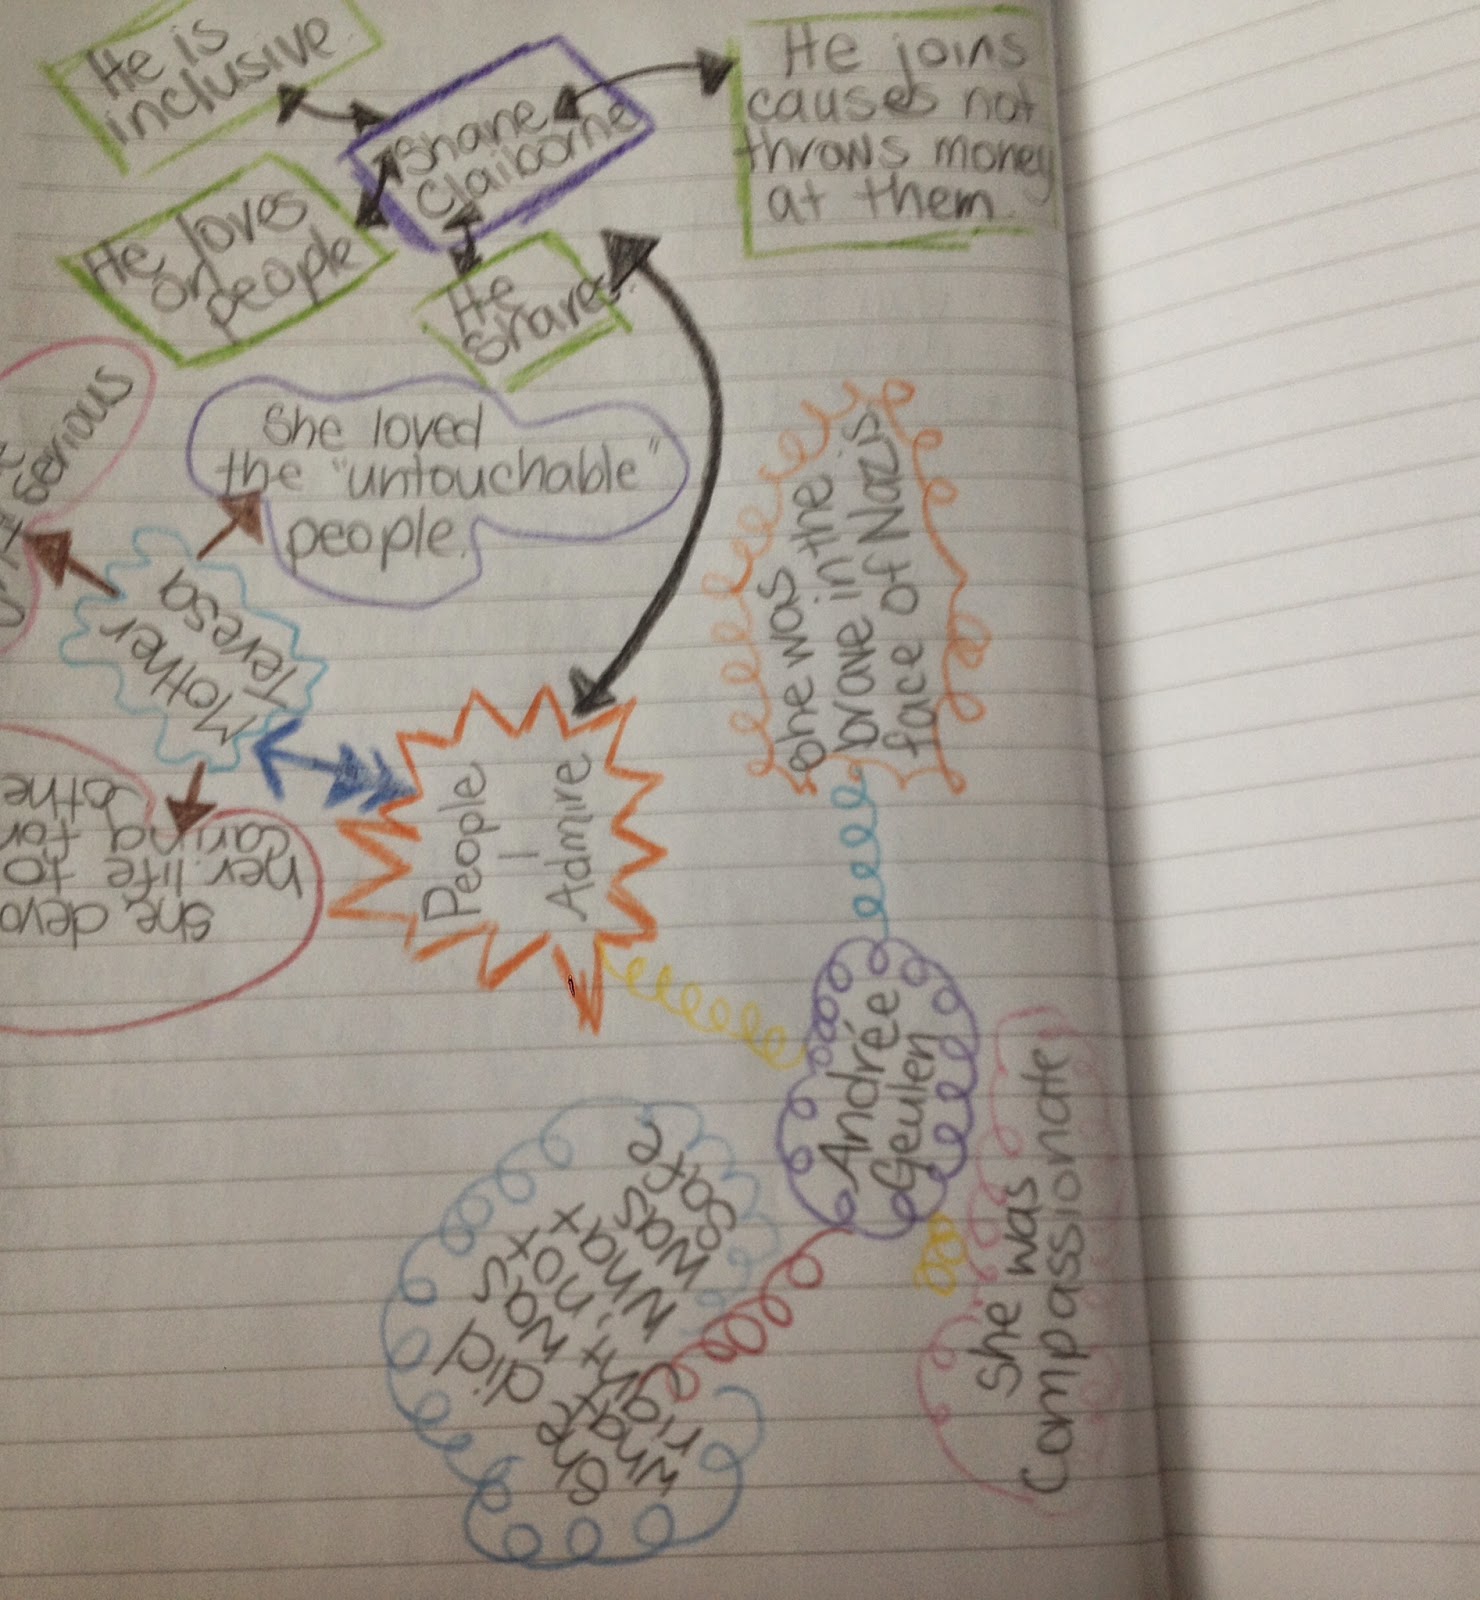 He is
inclusive.
Shane
Claiborne
He joins
causes not
throws money
at them.
He loves
on
people
He
shares.
serious
She loved
the "untouchable"
people.
Mother
Teresa
she devo
her life to
caring for
othe
People
I
Admire
she was
brave in the
face of Nazis
Andrée
Geulen
She was
Compassionate
She did
what was
right, not
what
was
safe